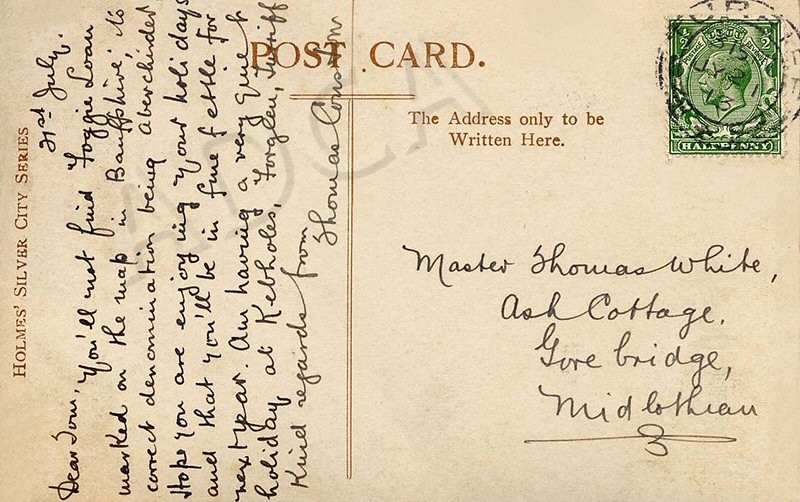 POST CARD.
The Address only to be
Written Here.
HOLMES' SILVER CITY SERIES
31st July.
Dear Tom,
You'll not find Foggie Loan
marked on the map in Banffshire; its
correct denomination being Aberchirder.
Hope you are enjoying your holidays
and that you'll be in fine fettle for
next year. Am having a very quiet
holiday at Kebholes, Forglen, Turriff
Kind regards from
Thomas
Master Thomas White,
Ash Cottage,
Gorebridge,
Midlothian
HALFPENNY
ADCA